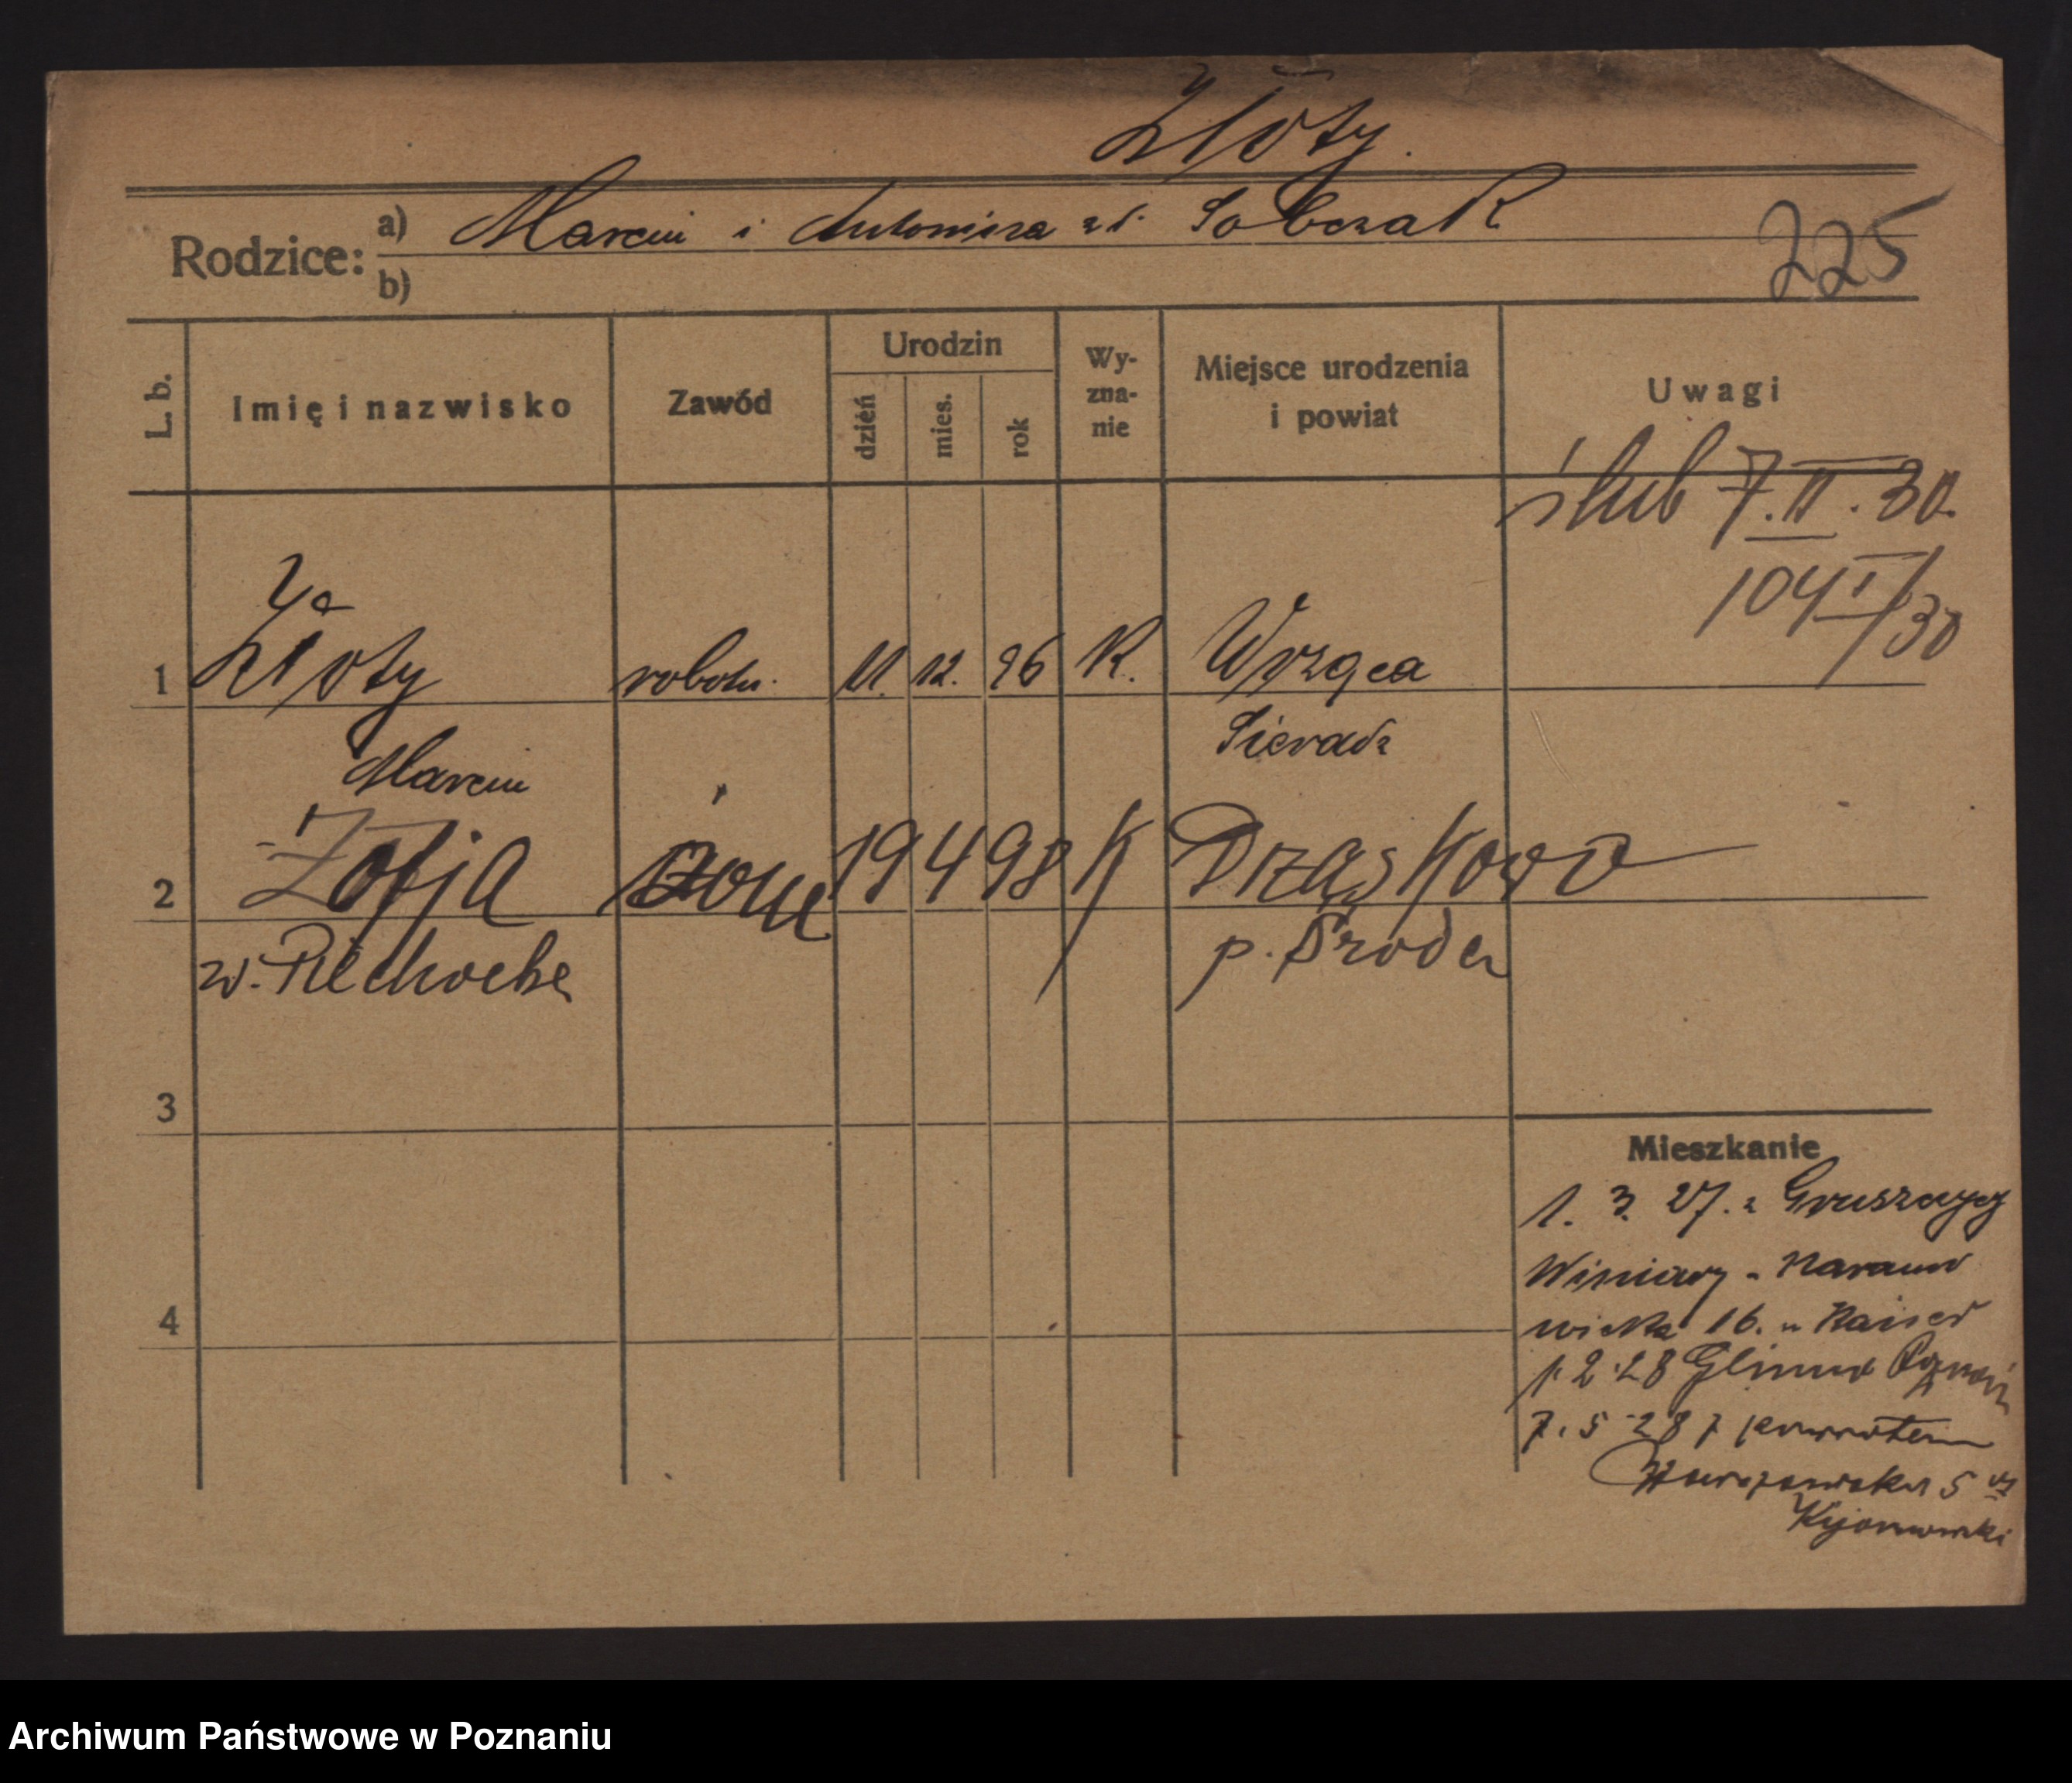 Złoty.
Rodzice: a) Marcin i Antonina zd. Sobczak
b)
225
L. b. Imię i nazwisko Zawód Urodzin dzień mies. rok Wy-zna-nie Miejsce urodzenia i powiat Uwagi
ślub 7.II.30.
104 I/30
1 Złoty robotn. 11. 12. 96 K. Wrząca
Marcin Sieradz
2 Zofja żona 19 4 98 K Drząskowo
w. Piechocka p. Środa
3
4
Mieszkanie
1. 3. 27. z Gruszczyn
Winiary - Naramo
wicka 16. u Kaiser
1. 2. 28 Glinno
7. 5 28 z powrotem
5
Kijanowski
Archiwum Państwowe w Poznaniu